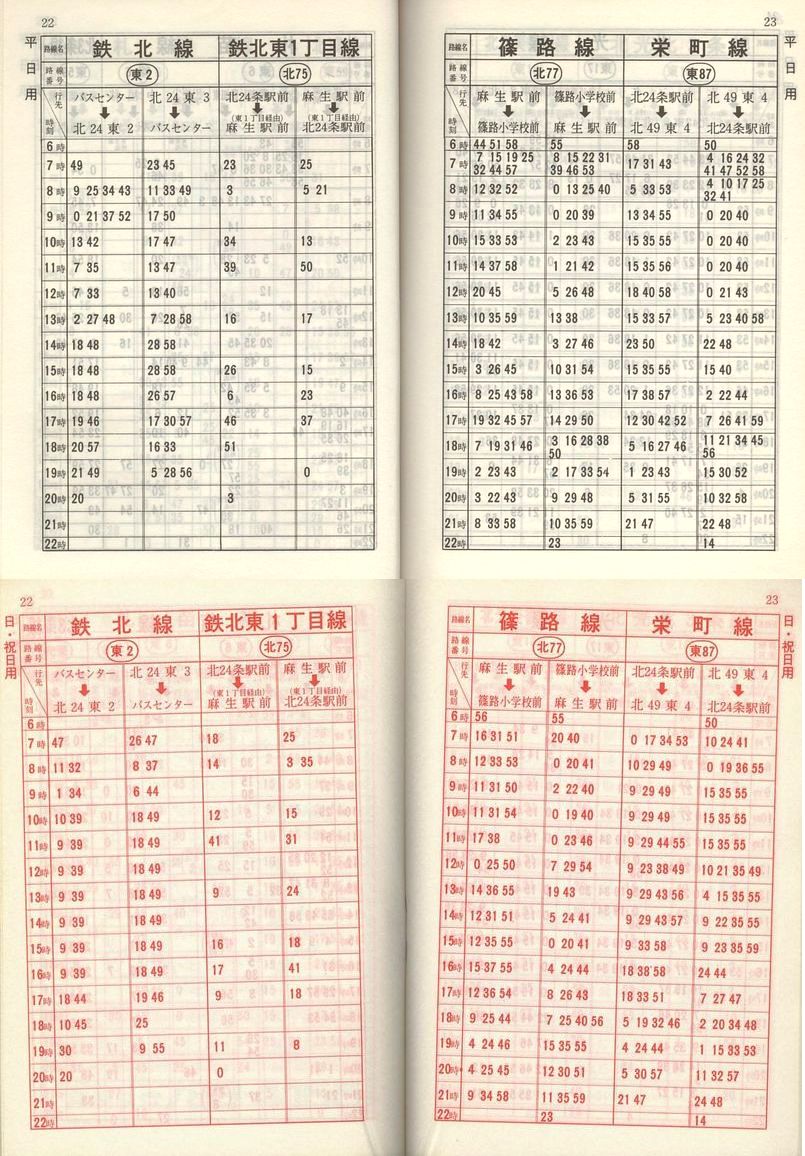 22
平日用
路線名 鉄北線 鉄北東1丁目線
路線番号 東2 北75
行先 時刻 バスセンター 北24東3 北24条駅前 麻生駅前
(東1丁目経由) (東1丁目経由)
北24東2 バスセンター 麻生駅前 北24条駅前
6時
7時 49 23 45 23 25
8時 9 25 34 43 11 33 49 3 5 21
9時 0 21 37 52 17 50
10時 13 42 17 47 34 13
11時 7 35 13 47 39 50
12時 7 33 13 40
13時 2 27 48 7 28 58 16 17
14時 18 48 28 58
15時 18 48 28 58 26 15
16時 18 48 26 57 6 23
17時 19 46 17 30 57 46 37
18時 20 57 16 33 51
19時 21 49 5 28 56 0
20時 20 3
21時
22時
23
平日用
路線名 篠路線 栄町線
路線番号 北77 東87
行先 時刻 麻生駅前 篠路小学校前 北24条駅前 北49東4
篠路小学校前 麻生駅前 北49東4 北24条駅前
6時 44 51 58 55 58 50
7時 7 15 19 25 8 15 22 31 17 31 43 4 16 24 32
32 44 57 39 46 53 41 47 52 58
8時 12 32 52 0 13 25 40 5 33 53 4 10 17 25
32 41
9時 11 34 55 0 20 39 13 34 55 0 20 40
10時 15 33 53 2 23 43 15 35 55 0 20 40
11時 14 37 58 1 21 42 15 35 56 0 20 40
12時 20 45 5 26 48 18 40 58 0 21 43
13時 10 35 59 13 38 15 33 57 5 23 40 58
14時 18 42 3 27 46 23 50 22 48
15時 3 26 45 10 31 54 15 35 55 15 40
16時 8 25 43 58 13 36 53 17 38 57 2 22 44
17時 19 32 45 57 14 29 50 12 30 42 52 7 26 41 59
18時 7 19 31 46 3 16 28 38 5 16 27 46 11 21 34 45
50 56
19時 2 23 43 2 17 33 54 1 23 43 15 30 52
20時 3 22 43 9 29 48 5 31 55 10 32 58
21時 8 33 58 10 35 59 21 47 22 48
22時 23 14
22
日・祝日用
路線名 鉄北線 鉄北東1丁目線
路線番号 東2 北75
行先 時刻 バスセンター 北24東3 北24条駅前 麻生駅前
(東1丁目経由) (東1丁目経由)
北24東2 バスセンター 麻生駅前 北24条駅前
6時
7時 47 26 47 18 25
8時 11 32 8 37 14 3 35
9時 1 34 6 44
10時 10 39 18 49 12 15
11時 9 39 18 49 41 31
12時 9 39 18 49
13時 9 39 18 49 9 24
14時 9 39 18 49
15時 9 39 18 49 16 18
16時 9 39 18 49 17 41
17時 18 44 19 46 9 18
18時 10 45 25
19時 30 9 55 11 8
20時 20 0
21時
22時
23
日・祝日用
路線名 篠路線 栄町線
路線番号 北77 東87
行先 時刻 麻生駅前 篠路小学校前 北24条駅前 北49東4
篠路小学校前 麻生駅前 北49東4 北24条駅前
6時 56 55 50
7時 16 31 51 20 40 0 17 34 53 10 24 41
8時 12 33 53 0 20 41 10 29 49 0 19 36 55
9時 11 31 50 2 22 40 9 29 49 15 35 55
10時 11 31 54 0 19 40 9 29 49 15 35 55
11時 17 38 0 23 46 9 29 44 55 15 35 55
12時 0 25 50 7 29 54 9 23 38 49 10 21 35 49
13時 14 36 55 19 43 9 29 43 56 4 15 35 55
14時 12 31 51 5 24 41 9 29 43 57 9 22 35 55
15時 12 35 55 0 20 41 9 33 58 9 23 35 59
16時 15 37 55 4 24 44 18 38 58 24 44
17時 12 36 54 8 26 43 18 33 51 7 27 47
18時 9 25 44 7 25 40 56 5 19 32 46 2 20 34 48
19時 4 24 46 15 35 55 4 24 44 1 15 33 53
20時 4 25 45 12 30 51 5 30 57 11 32 57
21時 9 34 58 11 35 59 21 47 24 48
22時 23 14